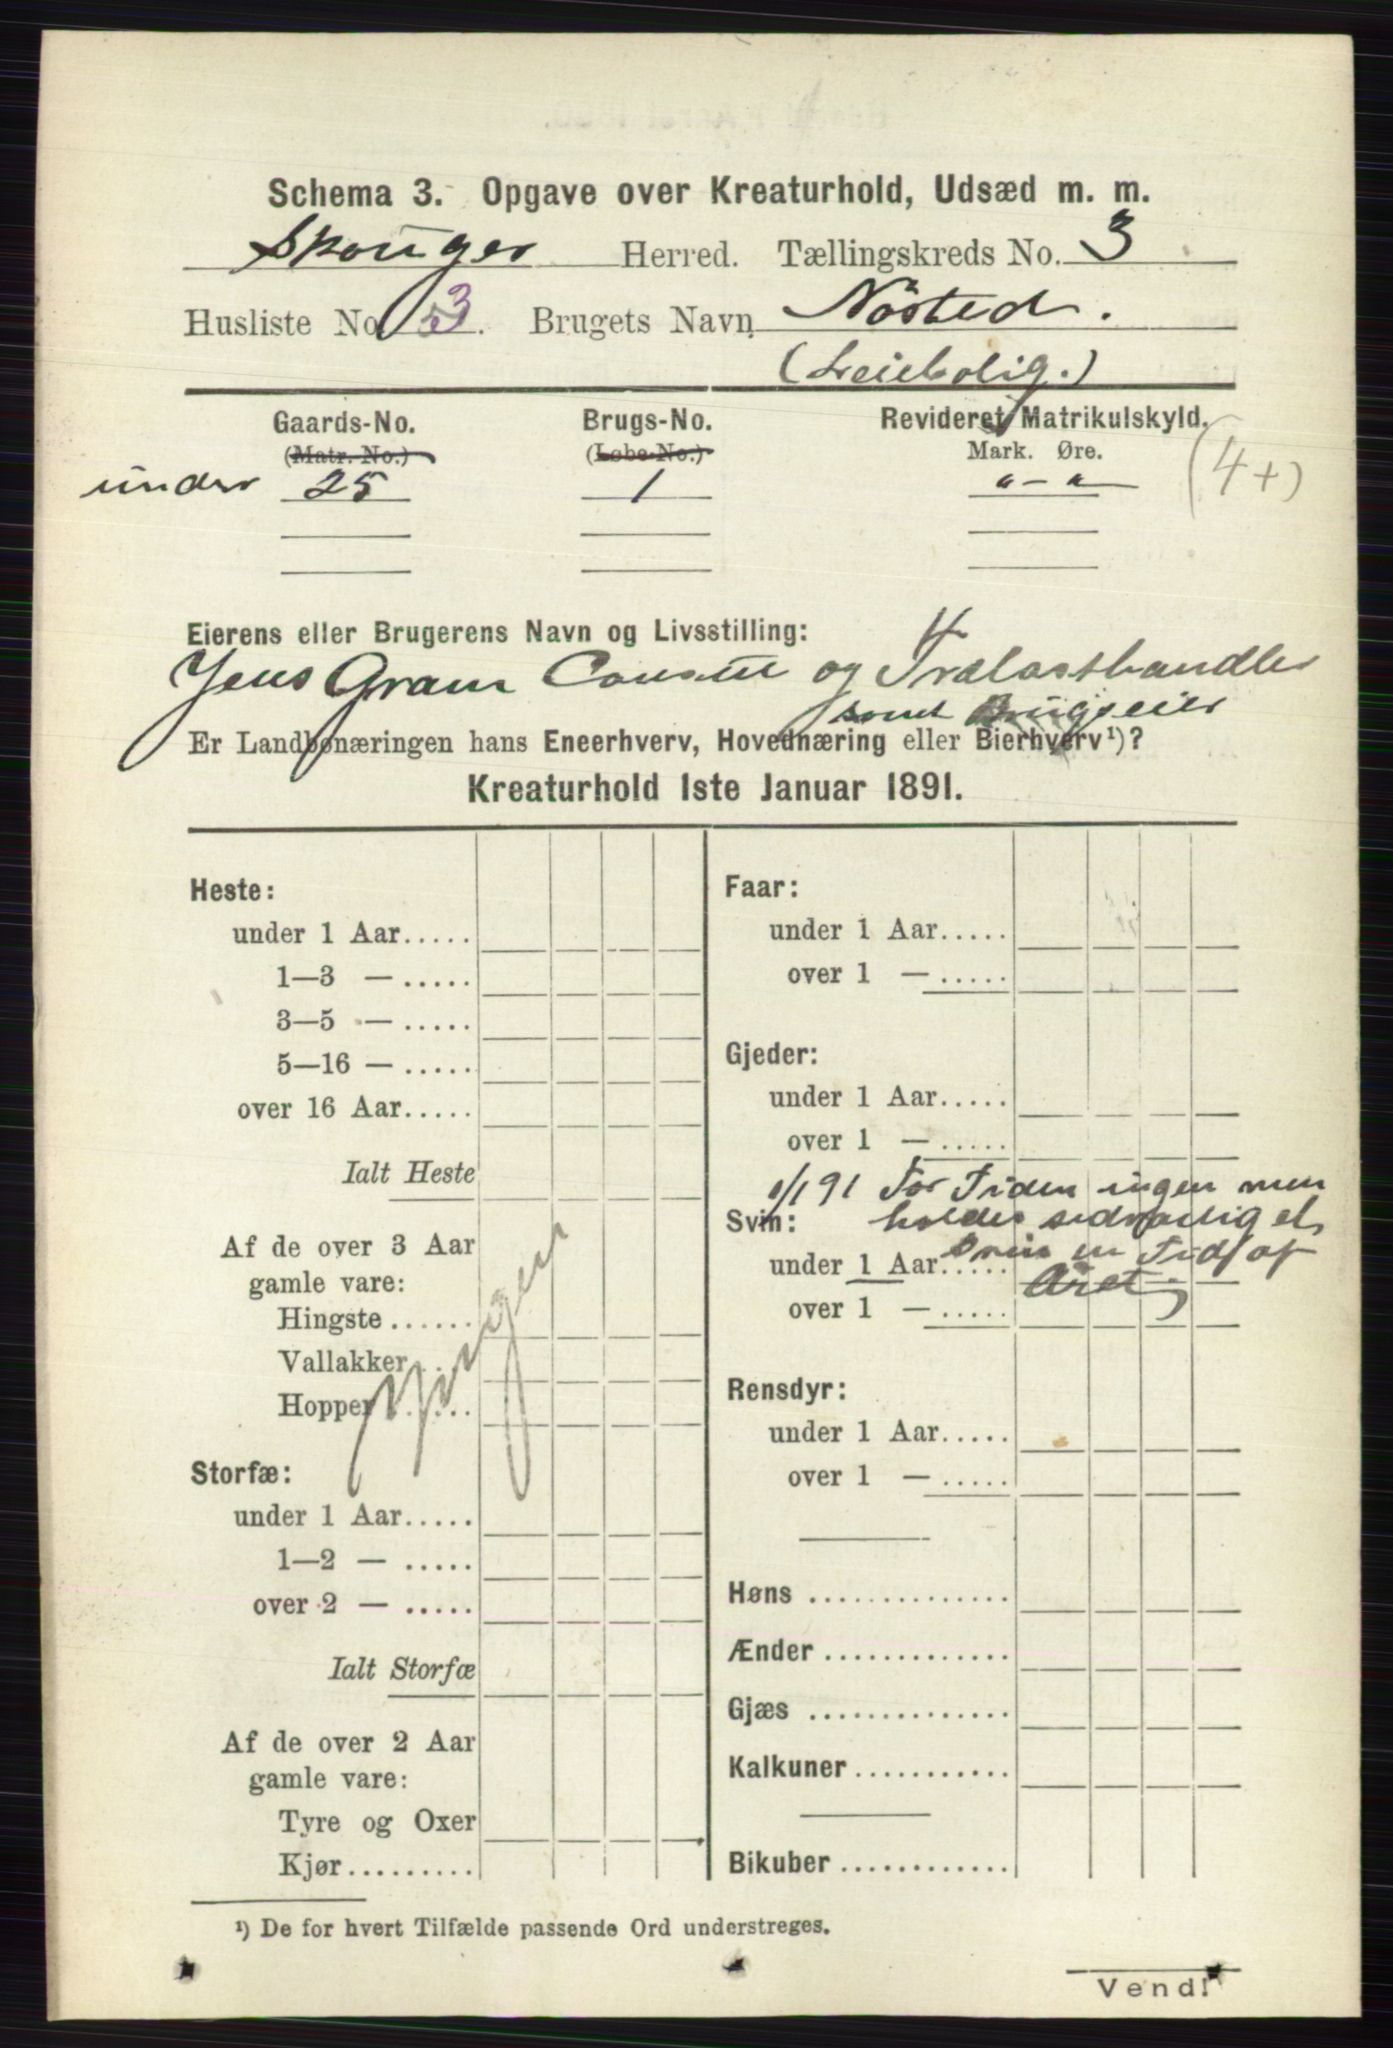 Schema 3. Opgave over Kreaturhold, Udsæd m. m.
Skouger Herred. Tællingskreds No. 3
Husliste No. 3. Brugets Navn Nøsted.
(Leiebolig.)
Gaards-No. Brugs-No. Revideret Matrikulskyld.
(Matr. No.) (Løbe-No.) Mark. Øre.
under 25 1 " - " (4+)
Eierens eller Brugerens Navn og Livsstilling:
Jens Gram Consul og Trælasthandler
samt Brugseier
Er Landbonæringen hans Eneerhverv, Hovednæring eller Bierhverv ¹)?
Kreaturhold 1ste Januar 1891.
Heste:
under 1 Aar.....
1—3 — .....
3—5 — .....
5—16 — .....
over 16 Aar.....
Ialt Heste
Af de over 3 Aar
gamle vare:
Hingste ......
Vallakker...
Hopper.....
Ingen
Storfæ:
under 1 Aar.....
1—2 — .....
over 2 — .....
Ialt Storfæ
Af de over 2 Aar
gamle vare:
Tyre og Oxer
Kjør.........
Faar:
under 1 Aar.....
over 1 — .....
Gjeder:
under 1 Aar.....
over 1 — .....
1/1 91 For Tiden ingen men
Svin: holdes sedvanlig et
under 1 Aar..... Svin en Tid af
Aaret
over 1 — .....
Rensdyr:
under 1 Aar.....
over 1 — .....
Høns ..............
Ænder .............
Gjæs ..............
Kalkuner ...........
Bikuber ............
¹) De for hvert Tilfælde passende Ord understreges.
Vend!